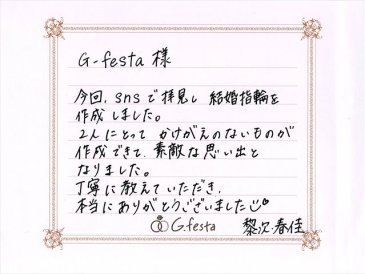 G-festa 様
今回、snsで拝見し 結婚指輪を
作成しました。
2人にとって かけがえのないものが
作成できて、素敵な思い出と
なりました。
丁寧に教えていただき、
本当にありがとうございました
G.festa 黎次 春佳